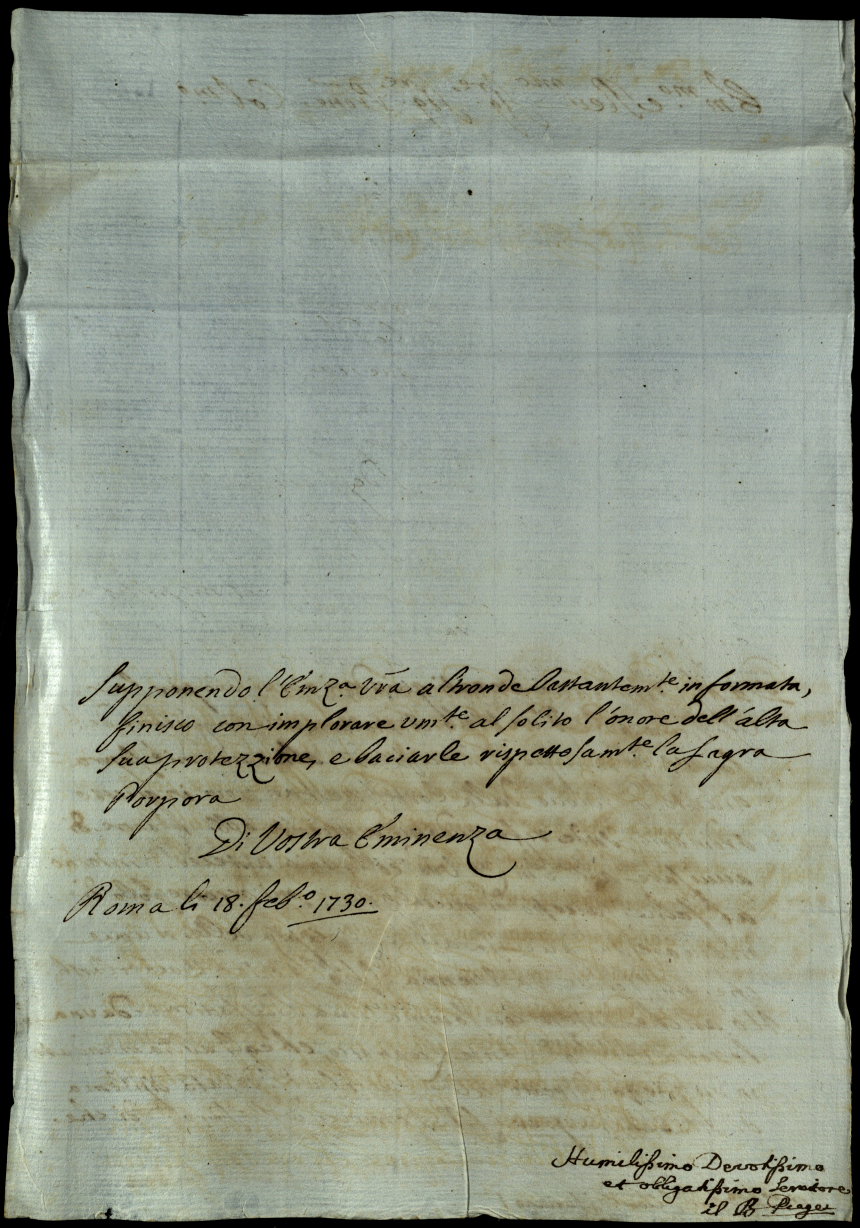 Supponendo l'Emza. Vrã altronde bastantemte. informata,
finisco con implorare vmte. al solito l'onore dell'alta
sua protezzione, e baciarle rispettosamte. la Sagra
Porpora
Di Vostra Eminenza
Roma li 18. febo. 1730.
Humilissimo Devotissimo
et obligatissimo Servitore